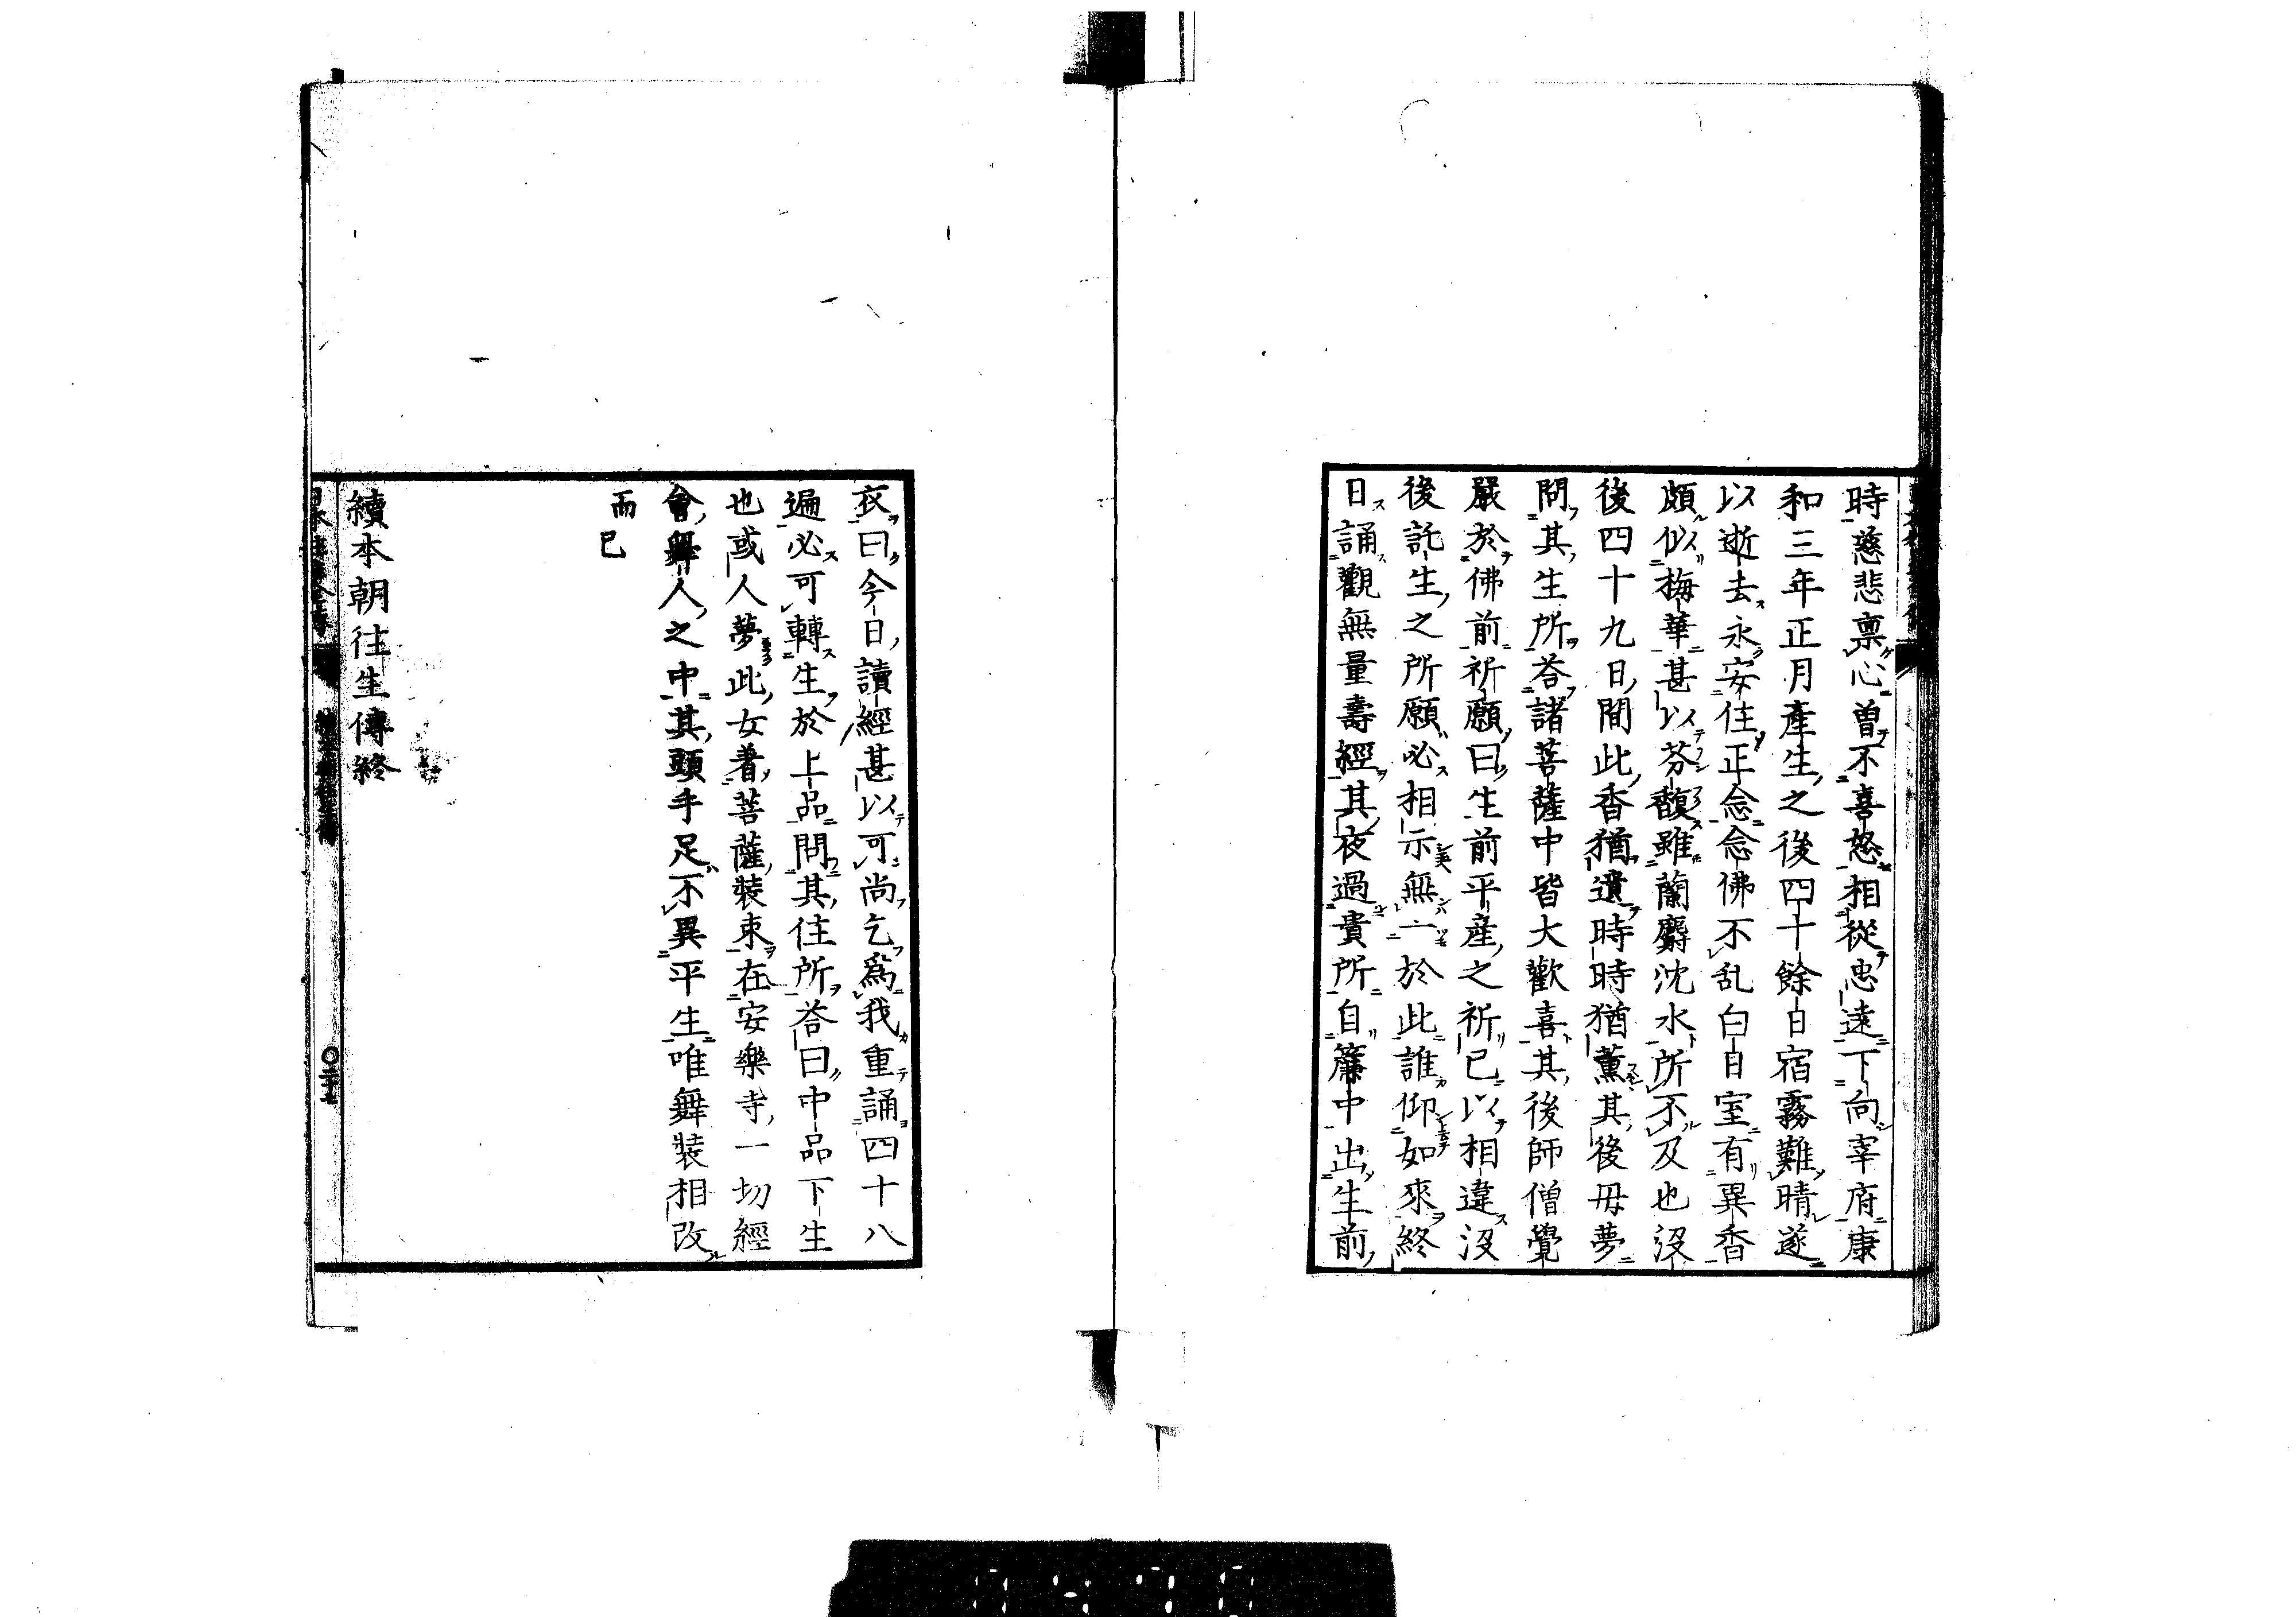 時慈悲稟心曽不喜怒相從忠遠下向宰府康
和三年正月產生之後四十餘日宿霧難晴遂
以逝去永安住正念念佛不乱白日室有異香
頗似梅華甚以芬馥雖蘭麝沈水所不及也沒
後四十九日間此香猶遺時時猶薫其後母夢
問其生所荅諸菩薩中皆大歡喜其後師僧覺
嚴於佛前祈願曰生前平産之祈已以相違沒
後託生之所願必相示無一於此誰仰如來終
日誦觀無量壽經其夜過貴所自簾中出生前
衣曰今日讀經甚以可尚乞爲我重誦四十八
遍必可轉生於上品問其住所荅曰中品下生
也或人夢此女着菩薩裝束在安樂寺一切經
會舞人之中其頭手足不異平生唯舞裝相改
而已
續本朝往生傳終